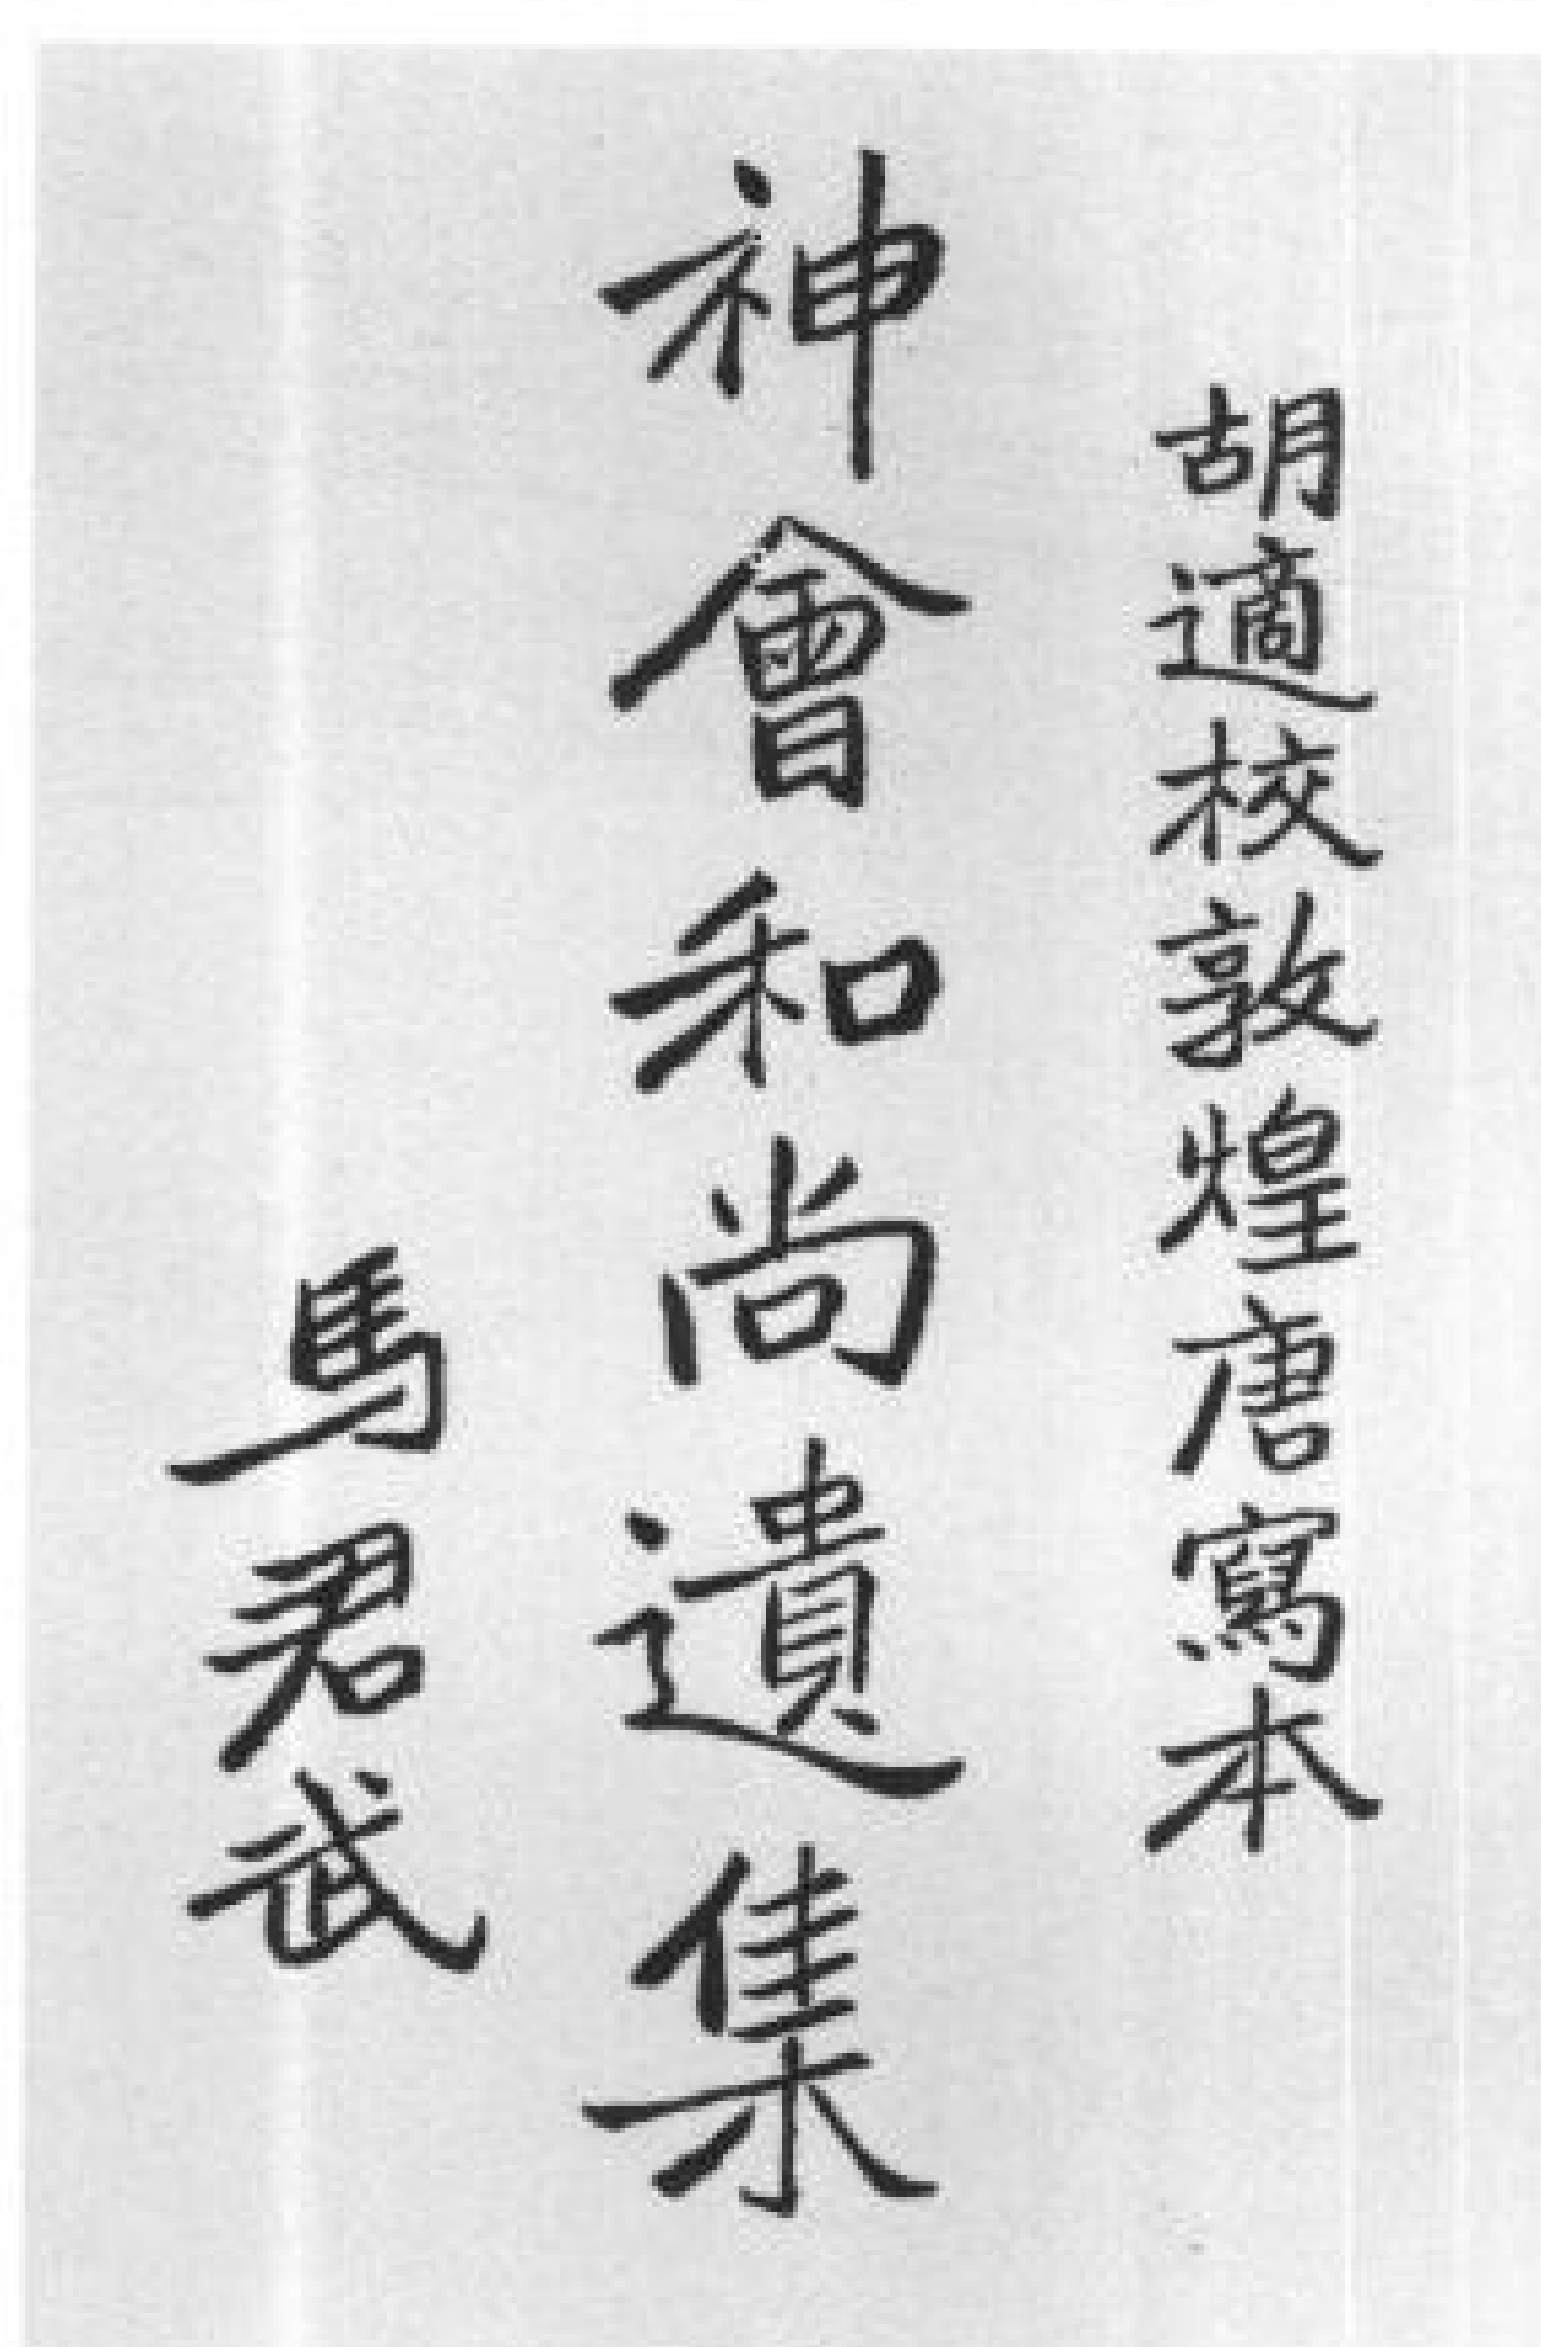 胡適校敦煌唐寫本
神會和尚遺集
馬君武